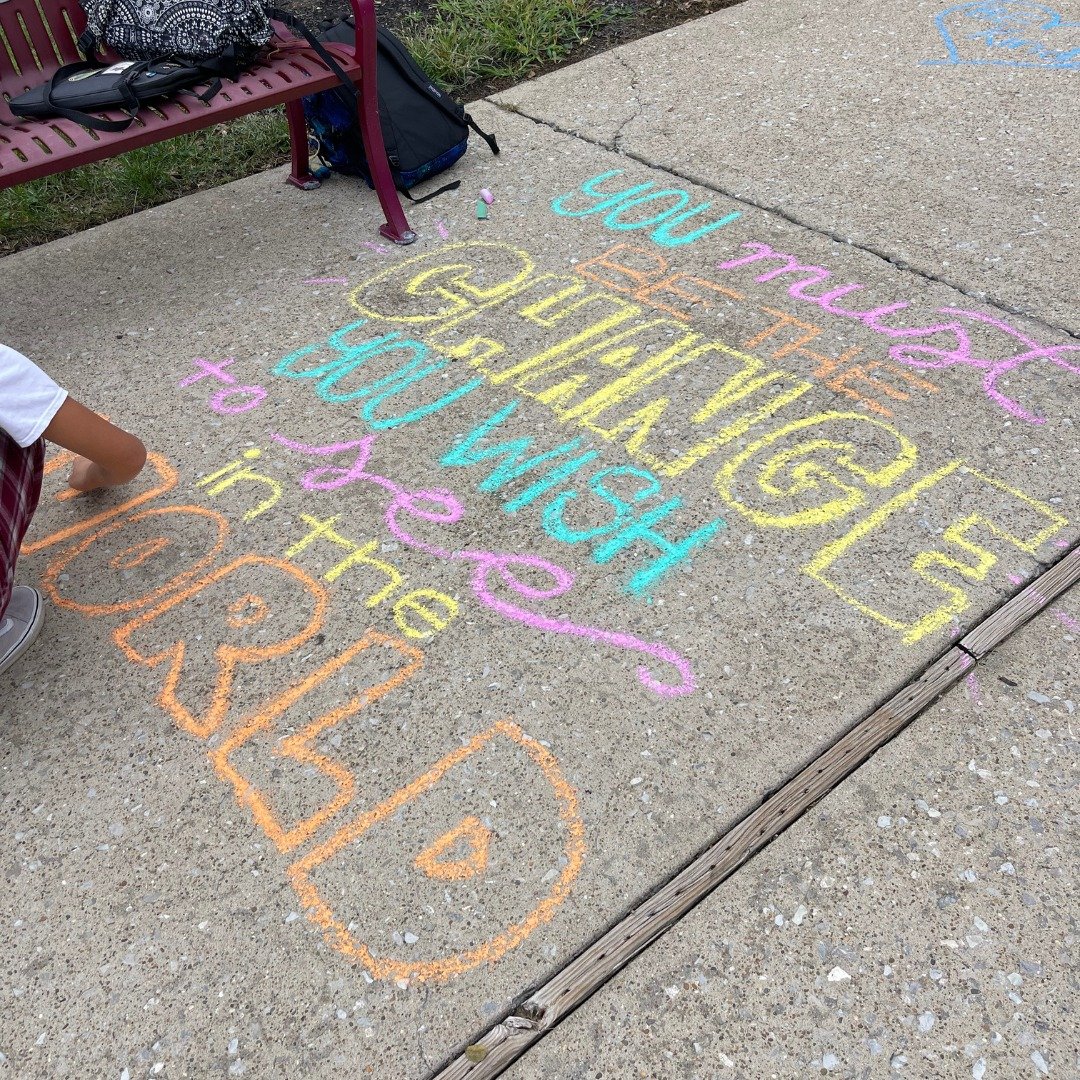 YOU must
BE THE
CHANGE
YOU WISH
to see
in the
WORLD